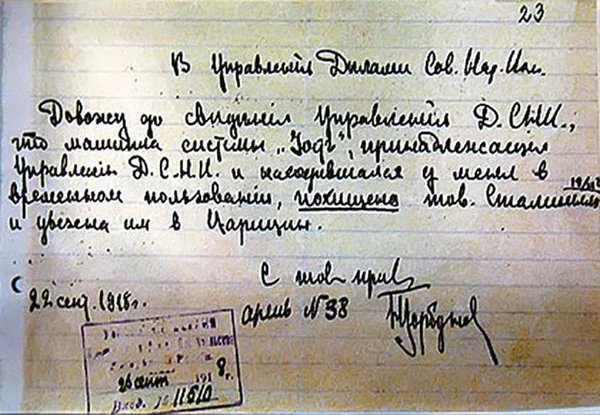 23
В Управленiя Дѣлами Сов. Нар. Ком.
Довожу до свѣдѣнiя Управленiя Д. С.Н.К.,
что машина системы „Фодъ", принадлежащая
Управленiю Д.С.Н.К. и находившаяся у меня в
временном пользованiи, похищена тов. Сталиным
19/IX
и увезена им в Царицын.
С тов. прив.
22 сент. 1918 г.
армiв N 38
26 сент 1918 г.
Вход. № 11510